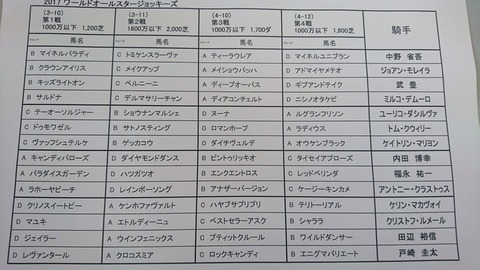 2017 ワールドオールスタージョッキーズ
(3-10) (3-11) (4-10) (4-12) 騎手
第1戦 第2戦 第3戦 第4戦
1000万以下 1,200芝 1600万以下 2,000芝 1000万以下 1,700ダ 1000万以下 1,800芝
馬名 馬名 馬名 馬名
B マイネルパラディ C トミケンスラーヴァ A ティーラウレア D マイネルユニブラン 中野 省吾
B クラウンアイリス C メイクアップ A メイショウバッハ D アドマイヤメテオ ジョアン・モレイラ
B キッズライトオン C ベルニーニ A ディープオーパス D ギブアンドテイク 武 豊
B サルドナ C デルマサリーチャン A ディアコンチェルト D ニシノオタケビ ミルコ・デムーロ
C テーオーソルジャー B ショウナンマルシェ D ヌーナ A ルグランフリソン ユーリコ・ダシルヴァ
C ドゥモワゼル B サトノスティング D ロマンホープ A ラディウス トム・クウィリー
C ヴァッフシュテルケ B ゲッカコウ D ダイチヴュルデ A オウケンブラック ケイトリン・マリヨン
A キャンディバローズ D ダイヤモンドダンス B ピントゥリッキオ C タイセイアプローズ 内田 博幸
A パラダイスガーデン D ハツガツオ B エンクエントロス C レッドベリンダ 福永 祐一
A ラホーヤビーチ D レインボーソング B アナザーバージョン C ケージーキンカメ アントニー・クラストゥス
D クリノスイートピー A ケンホファヴァルト C ハヤブサプリプリ B テリトーリアル ケリン・マカヴォイ
D マユキ A エトルディーニュ C ベストセラーアスク B シャララ クリストフ・ルメール
D ジェイラー A ウインフェニックス C ブティックルール B ワイルドダンサー 田辺 裕信
D レヴァンタール A クロコスミア C ロックキャンディ B エニグマバリエート 戸崎 圭太